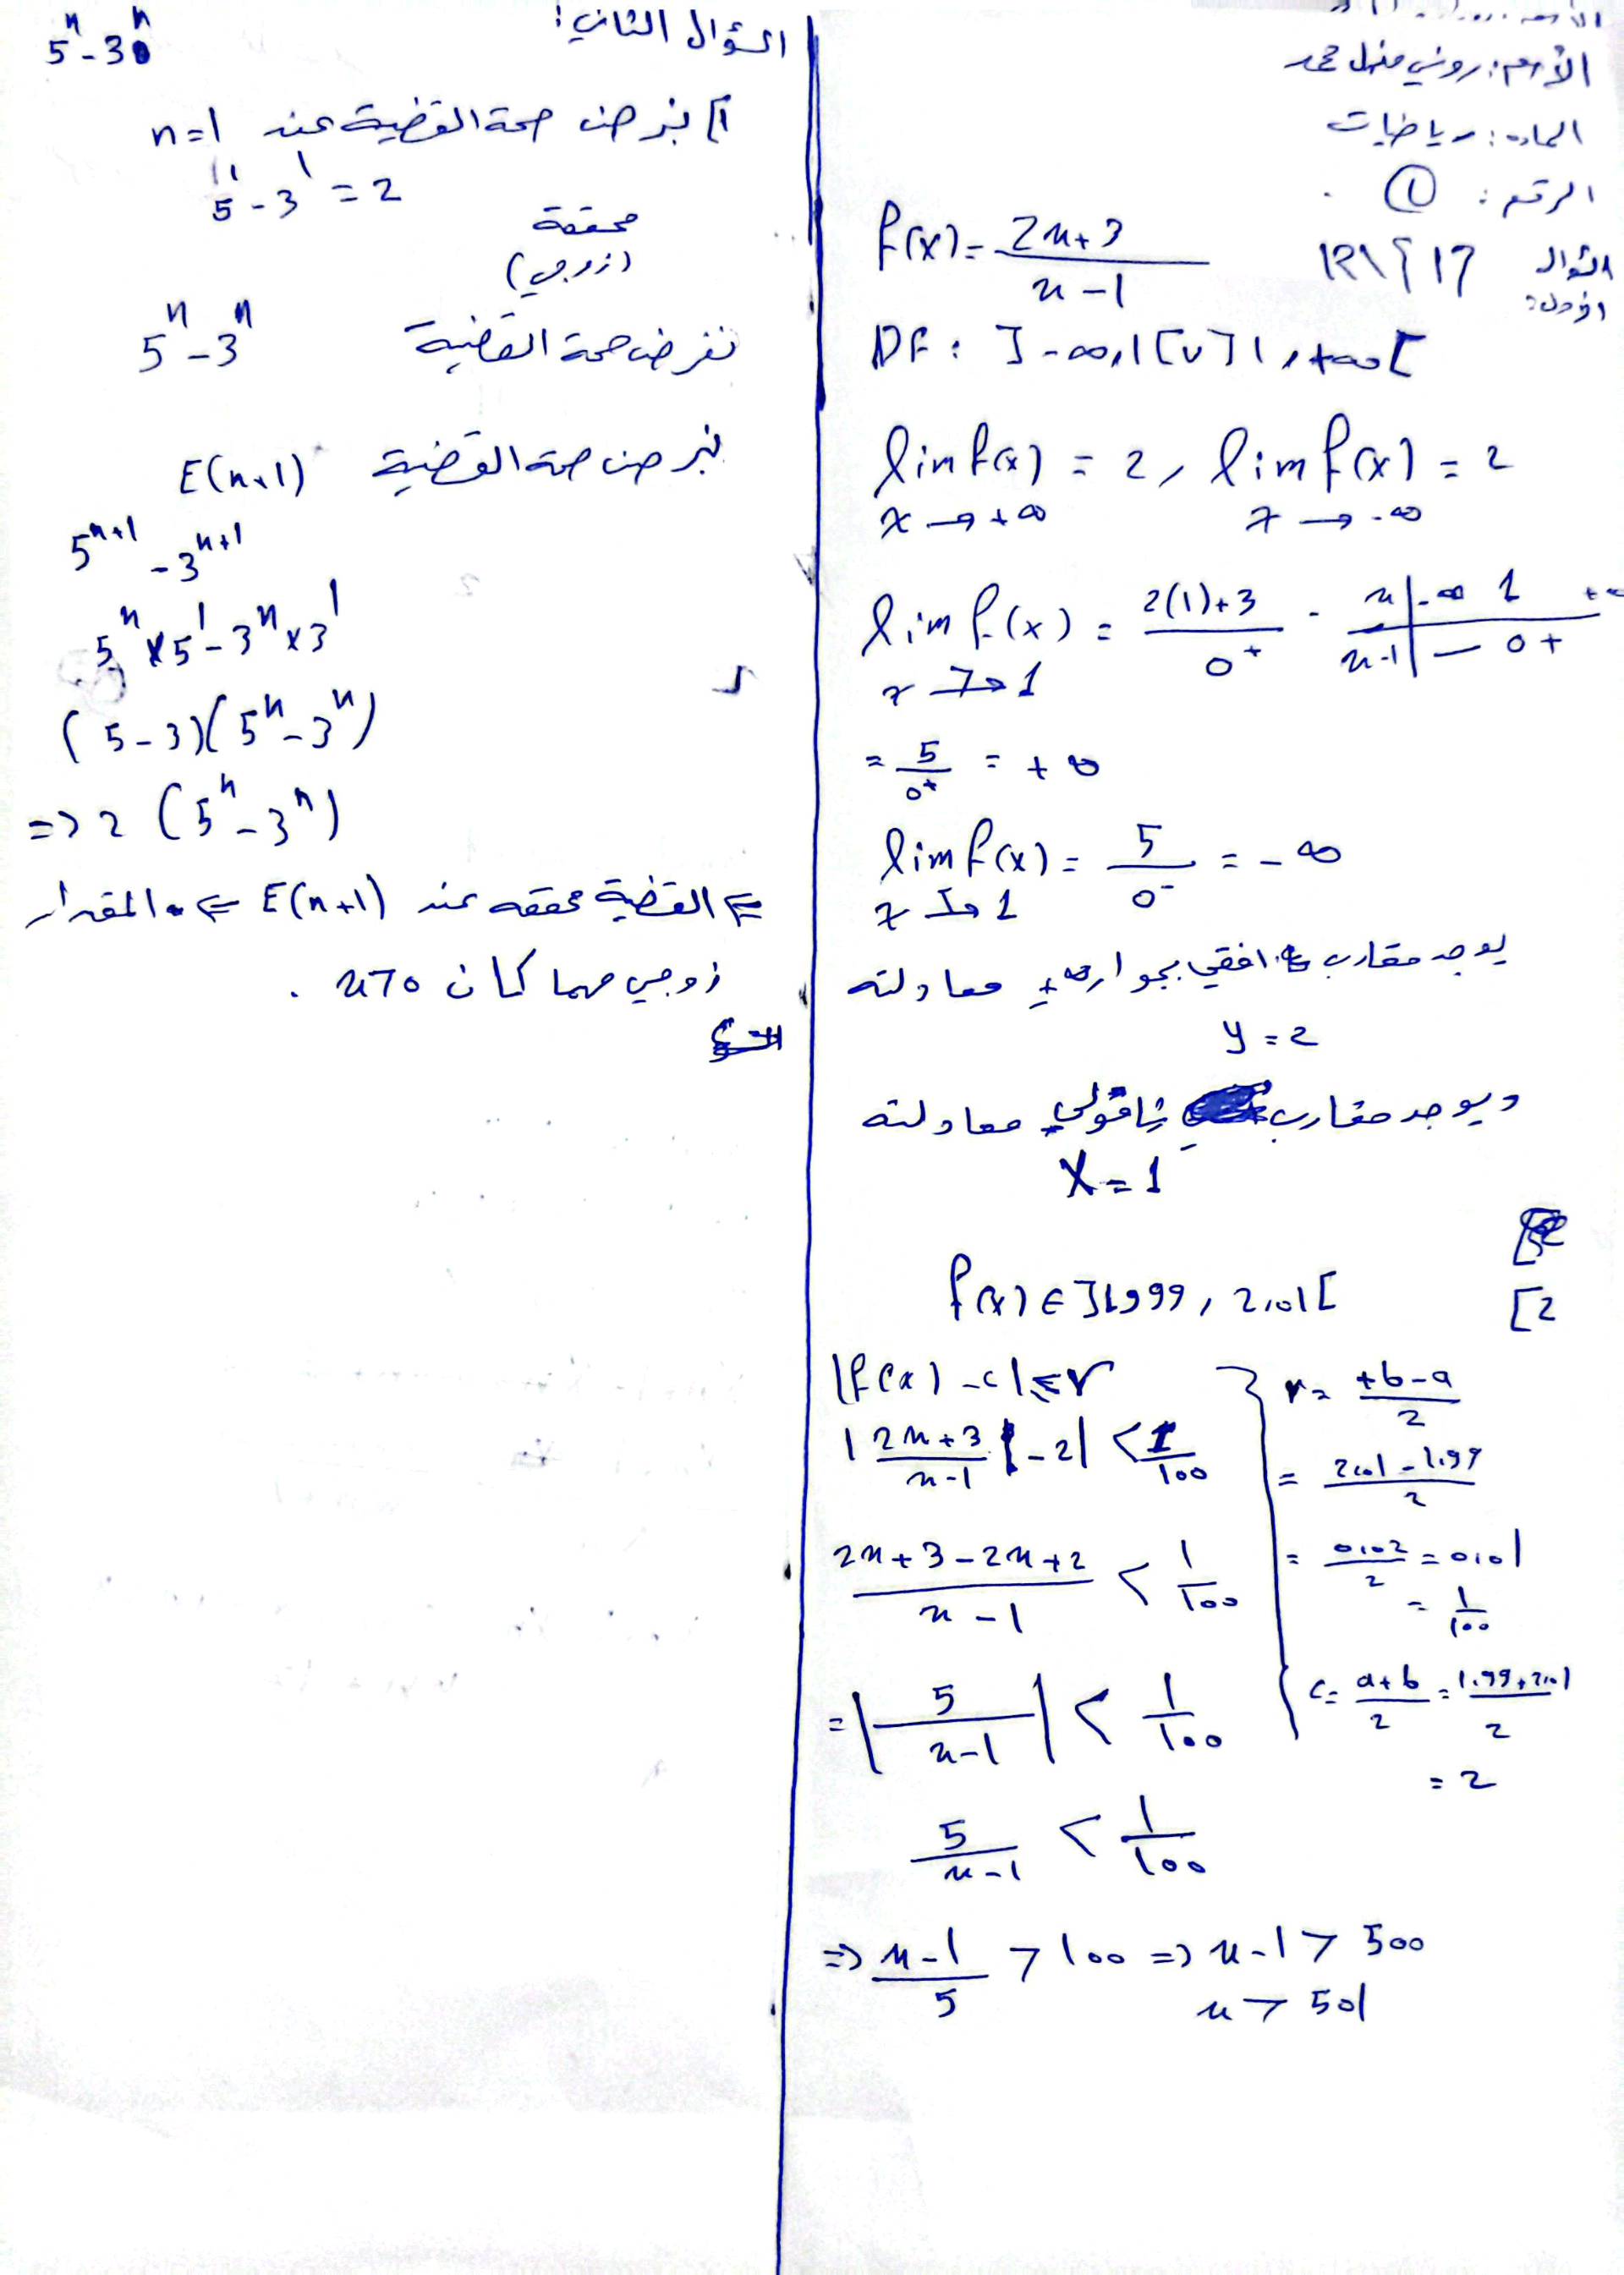 الأسم: روني محمد
الماده: رياضيات
الرقم: ①
السؤال الأول:
f(x) = (2x+3)/(x-1)
R\{1}
DF: ]-∞,1[ ∪ ]1,+∞[
lim f(x) = 2, lim f(x) = 2
x → +∞ x → -∞
lim f(x) = (2(1)+3)/0⁺
x → 1
x | -∞ 1 +∞
x-1 | - 0 +
= 5/0⁺ = +∞
lim f(x) = 5/0⁻ = -∞
x → 1
يوجد مقارب افقي بجوار ±∞ معادلته
y = 2
ويوجد مقارب شاقولي معادلته
X = 1
[2
f(x) ∈ ]1,999, 2,01[
|f(x) - c| < r
|(2x+3)/(x-1) - 2| < 1/100
(2x+3-2x+2)/(x-1) < 1/100
= |5/(x-1)| < 1/100
5/(x-1) < 1/100
⇒ (x-1)/5 > 100 ⇒ x-1 > 500
x > 501
r = (+b-a)/2
= (2,01 - 1,99)/2
= 0,02/2 = 0,01
= 1/100
c = (a+b)/2 = (1,99+2,01)/2
= 2
السؤال الثاني:
5ⁿ - 3ⁿ
1] نبرهن صحة القضية عند n=1
5¹ - 3¹ = 2
محققة
(زوجي)
نفرض صحة القضية 5ⁿ - 3ⁿ
نبرهن صحة القضية E(n+1)
5ⁿ⁺¹ - 3ⁿ⁺¹
5ⁿ×5¹ - 3ⁿ×3¹
(5-3)(5ⁿ-3ⁿ)
⇒ 2(5ⁿ-3ⁿ)
⇐ القضية محققه عند E(n+1) ⇐ المقدار
زوجي مهما كان n>0 .